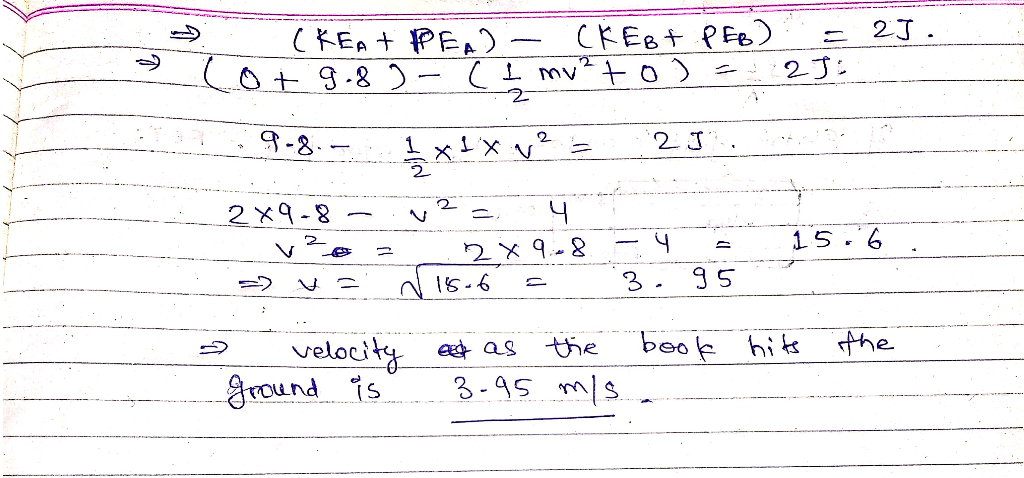 ⇒ (KEA + PEA) - (KEB + PEB) = 2J.
⇒ (0 + 9.8) - (1/2 mv² + 0) = 2J.
9.8. - 1/2 × 1 × v² = 2J.
2×9.8 - v² = 4
v² = 2×9.8 - 4 = 15.6.
⇒ v = √15.6 = 3.95
⇒ velocity as the book hits the
ground is 3.95 m/s.